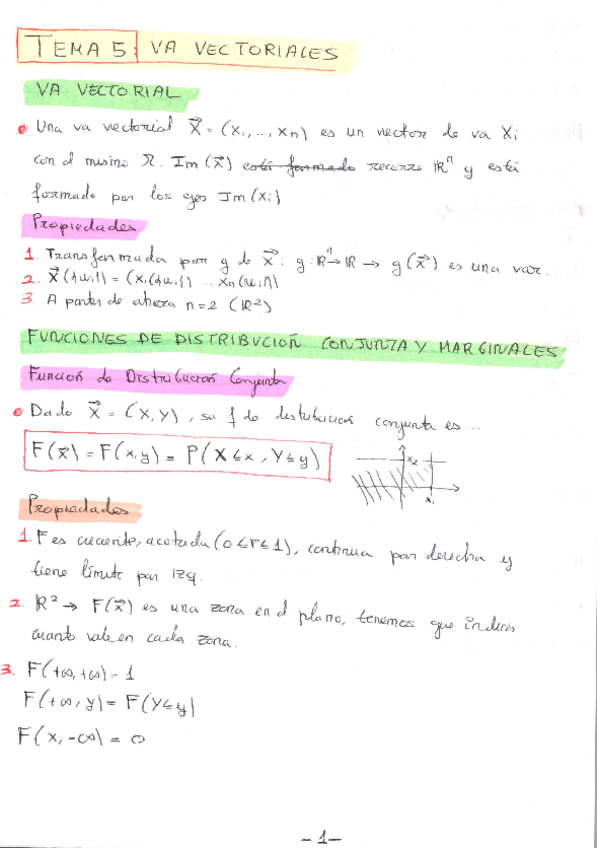 TEMA 5: VA VECTORIALES
VA VECTORIAL
Una va vectorial X⃗ = (X₁, ..., Xn) es un vector de va Xi
con el mismo Ω. Im(X⃗) está formado recorre ℝⁿ y está
formado por los ejes Im(Xi)
Propiedades
1. Transformada por g de X⃗: g: ℝⁿ→ℝ → g(X⃗) es una var...
2. X⃗({ωi}) = (X₁({ωi}) ... Xn({ωi}))
3. A partir de ahora n=2 (ℝ²)
FUNCIONES DE DISTRIBUCION CONJUNTA Y MARGINALES
Función de Distribución Conjunta
Dado X⃗ = (X, Y), su f de distribución conjunta es...
F(x⃗) = F(x,y) = P(X≤x, Y≤y)
x₂
x₁
Propiedades
1. F es creciente, acotada (0≤F≤1), continua por derecha y
tiene límite por izq.
2. ℝ² → F(x⃗) es una zona en el plano, tenemos que indicar
cuanto vale en cada zona.
3. F(+∞,+∞) = 1
F(+∞, y) = F(Y≤y)
F(x, -∞) = 0
-1-